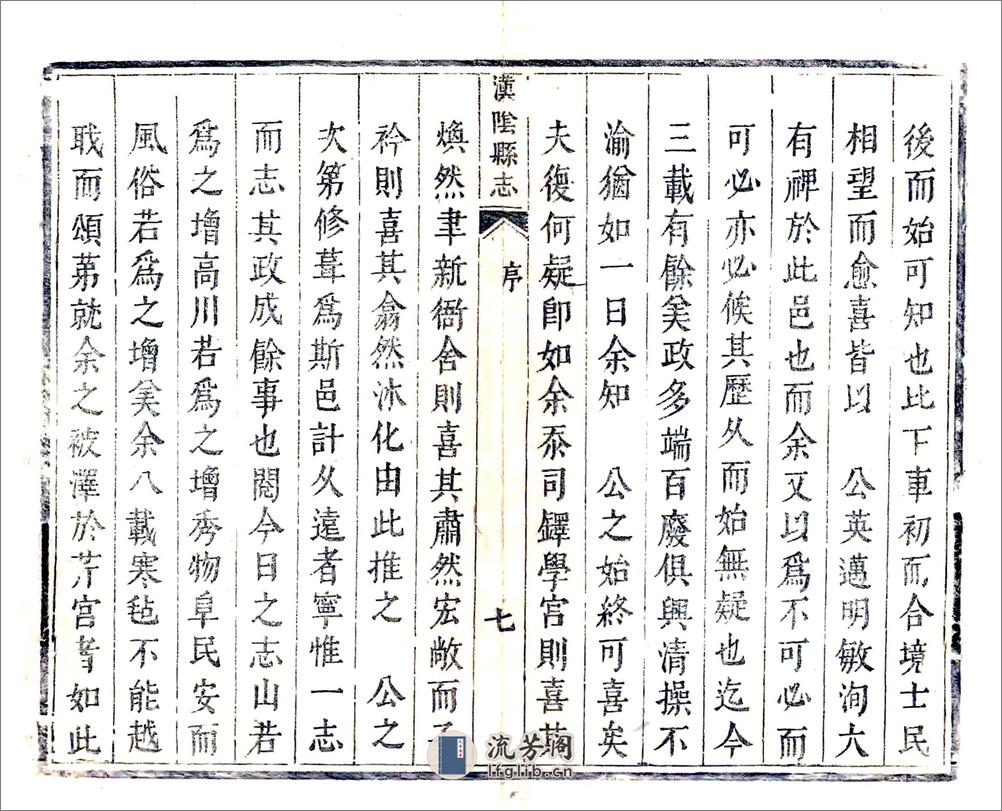 後而始可知也比下車初而合境士民
相望而愈喜皆以　公英邁明敏洵大
有裨於此邑也而余又以爲不可必而
可必亦必候其歷久而始無疑也迄今
三載有餘矣政多端百廢俱興清操不
渝猶如一日余知　公之始終可喜矣
夫復何疑卽如余忝司鐸學官則喜其
漢陰縣志
序
七
煥然聿新衙舍則喜其肅然宏敞而子
衿則喜其翕然沐化由此推之　公之
次第修葺爲斯邑計久遠者寧惟一志
而志其政成餘事也閱今日之志山若
爲之增高川若爲之增秀物阜民安而
風俗若爲之增美余八載寒毡不能越
耴而頌苐就余之被澤於芹宮者如此
流芳閣
lfglib.cn